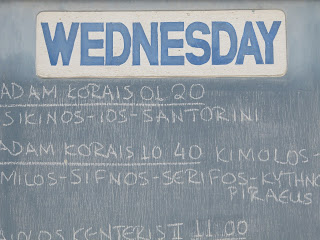 WEDNESDAY
ADAM KORAIS 01 20
SIKINOS-IOS-SANTORINI
ADAM KORAIS 10 40 KIMOLOS-
MILOS-SIFNOS-SERIFOS-KYTHNO
PIRAEUS
KENTERIS II 11:00